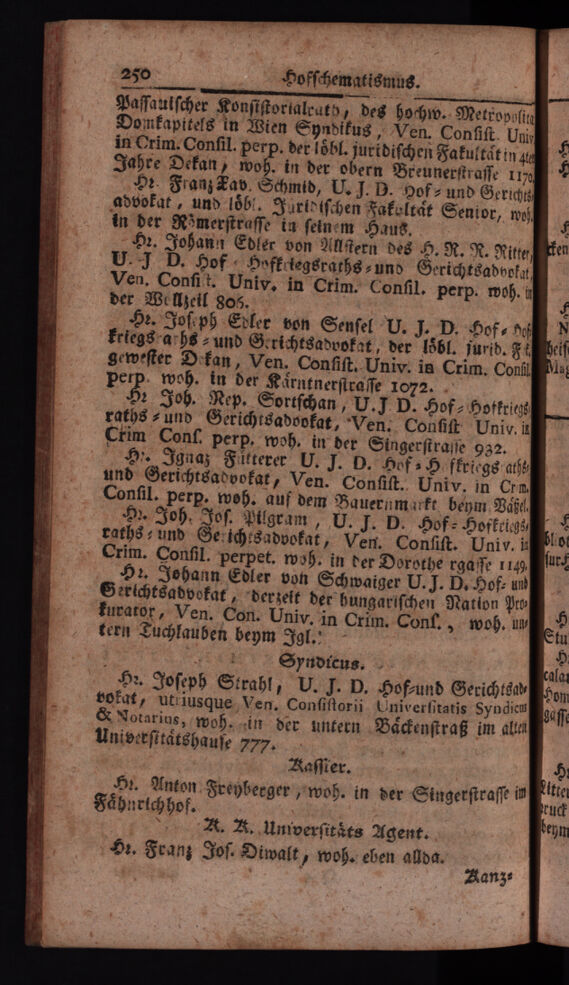 250 Hofschematismus.
Passauischer Konsistorialrath, des hochw. Metropolita
Domkapitels in Wien Syndikus, Ven. Consist. Univ.
in Crim. Consil. perp. der löbl. juridischen Fakultät in 4ten
Jahre Dekan, woh. in der obern Breunerstrasse 1170.
Hr. Franz Xav. Schmid, U. J. D. Hof- und Gerichts-
advokat, und löbl. Juridischen Fakultät Senior, woh.
in der Römerstrasse in seinem Haus.
Hr. Johann Edler von Allstern des H. R. R. Ritter,
U. J D. Hof- Hofkriegsraths- und Gerichtsadvokat,
Ven. Consist. Univ. in Crim. Consil. perp. woh. in
der Wollzeil 805.
Hr. Joseph Edler von Sensel U. J. D. Hof- Hof
kriegsraths- und Gerichtsadvokat, der löbl. jurid. Fak
gewester Dekan, Ven. Consist. Univ. in Crim. Consil.
perp. woh. in der Kärntnerstrasse 1072.
Hr Joh. Nep. Sortschan, U. J D. Hof- Hofkriegs
raths- und Gerichtsadvokat, Ven. Consist Univ. in
Crim Cons. perp. woh. in der Singerstrasse 932.
Hr. Ignaz Fütterer U. J. D. Hof- Hofkriegsraths-
und Gerichtsadvokat, Ven. Consist. Univ. in Crim.
Consil. perp. woh. auf dem Bauernmarkt beym
Hr. Joh. Jos. Pilgram, U. J. D. Hof- Hofkriegs-
raths- und Gerichtsadvokat, Ven. Consist. Univ. in
Crim. Consil. perpet. woh. in der Dorotheergasse 1149.
Hr. Johann Edler von Schwaiger U. J. D. Hof- und
Gerichtsadvokat, derzeit der hungarischen Nation Pro-
kurator, Ven. Con. Univ. in Crim. Cons., woh. un-
tern Tuchlauben beym Igl.
Syndicus.
Hr. Joseph Strahl, U. J. D. Hof- und Gerichtsad-
vokat, utriusque Ven. Consistorii Universitatis Syndicus
& Notarius, woh. in der untern Bäckenstraß im alten
Universitätshause 777.
Kassier.
Hr. Anton Freyberger, woh. in der Singerstrasse im
Fähnrichhof.
K. K. Universitäts Agent.
Hr. Franz Jos. Diwalt, woh. eben allda.
Kanz-